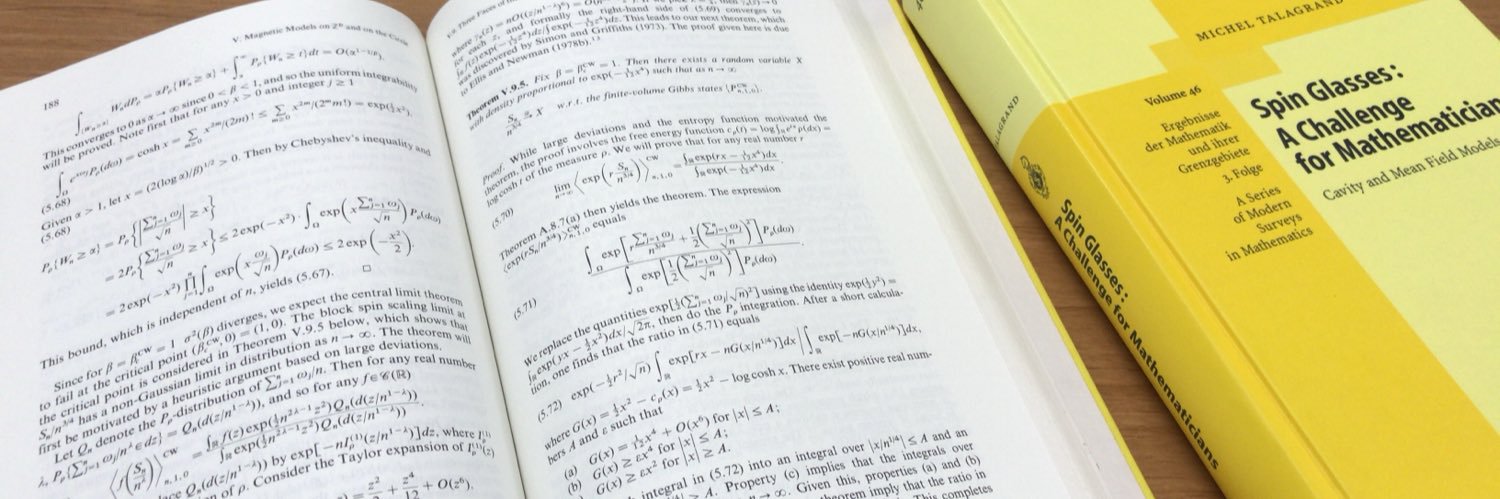 188
V. Magnetic Models on Z^D and on the Circle
∫_{W_n≥α} W_n dP_ρ = αP_ρ{W_n ≥ α} + ∫_α^∞ P_ρ{W_n ≥ t}dt = O(α^{1−1/β}).
This converges to 0 as α → ∞ since 0 < β < 1, and so the uniform integrability
will be proved. Note first that for any x > 0 and integer j ≥ 1
∫_Ω e^{xω_j}P_ρ(dω) = cosh x = Σ_{m≥0} x^{2m}/(2m)! ≤ Σ_{m≥0} x^{2m}/(2^m m!) = exp(½x²).
(5.68)
Given α > 1, let x = (2(log α)/β)^{1/2} > 0. Then by Chebyshev's inequality and
(5.68)
P_ρ{W_n ≥ α} = P_ρ{|Σ_{j=1}^n ω_j/√n| ≥ x}
= 2P_ρ{Σ_{j=1}^n ω_j/√n ≥ x} ≤ 2 exp(−x²) · ∫_Ω exp(x Σ_{j=1}^n ω_j/√n) P_ρ(dω)
= 2 exp(−x²) ∏_{j=1}^n ∫_Ω exp(x ω_j/√n) P_ρ(dω) ≤ 2 exp(−x²/2).
This bound, which is independent of n, yields (5.67). □
Since for β = β_c^{CW} = 1 σ²(β) diverges, we expect the central limit theorem
to fail at the critical point (β_c^{CW}, 0) = (1, 0). The block spin scaling limit at
the critical point is considered in Theorem V.9.5 below, which shows that
S_n/n^{3/4} has a non-Gaussian limit in distribution as n → ∞. The theorem will
first be motivated by a heuristic argument based on large deviations.
Let Q_n denote the P_ρ-distribution of Σ_{j=1}^n ω_j/n. Then for any real number
λ, P_ρ{Σ_{j=1}^n ω_j/n^λ ∈ dz} = Q_n(d(z/n^{1−λ})), and so for any f ∈ 𝒞(ℝ)
⟨f(S_n/n^λ)⟩_{n,1,0}^{CW} = ∫_ℝ f(z) exp(½n^{2λ−1}z²)Q_n(d(z/n^{1−λ})) / ∫_ℝ exp(½n^{2λ−1}z²)Q_n(d(z/n^{1−λ})).
Q_n(d(z/n^{1−λ})) by exp[−nI_ρ^{(1)}(z/n^{1−λ})]dz, where I_ρ^{(1)}
of ρ. Consider the Taylor expansion of I_ρ^{(1)}(z)
z²/2 + z⁴/12 + O(z⁶).
for each z, and formally the right-hand side of (5.69) converges to
This leads to our next theorem, which
was discovered by Simon and Griffiths (1973). The proof given here is due
to Ellis and Newman (1978b).
Theorem V.9.5. Fix β = β_c^{CW} = 1. Then there exists a random variable X
with density proportional to exp(−1/12 x⁴) such that as n → ∞
S_n/n^{3/4} →^𝒟 X w.r.t. the finite-volume Gibbs states {P_{n,1,0}^{CW}}.
Proof. While large deviations and the entropy function motivated the
theorem, the proof involves the free energy function c_ρ(t) = log ∫_ℝ e^{tx} ρ(dx) =
log cosh t of the measure ρ. We will prove that for any real number r
(5.70)
lim_{n→∞} ⟨exp(r S_n/n^{3/4})⟩_{n,1,0}^{CW} = ∫_ℝ exp(rx − 1/12 x⁴)dx / ∫_ℝ exp(−1/12 x⁴)dx.
Theorem A.8.7(a) then yields the theorem. The expression
⟨exp(rS_n/n^{3/4})⟩_{n,1,0}^{CW} equals
(5.71)
∫_Ω exp[r Σ_{j=1}^n ω_j/n^{3/4} + ½(Σ_{j=1}^n ω_j/√n)²]P_ρ(dω) / ∫_Ω exp[½(Σ_{j=1}^n ω_j/√n)²]P_ρ(dω).
We replace the quantities exp[½(Σ_{j=1}^n ω_j/√n)²] using the identity exp(½y²) =
∫_ℝ exp(yx − ½x²)dx/√2π, then do the P_ρ integration. After a short calcula-
tion, one finds that the ratio in (5.71) equals
(5.72) exp(−½r²/√n) ∫_ℝ exp[rx − nG(x/n^{1/4})]dx / ∫_ℝ exp[−nG(x/n^{1/4})]dx,
where G(x) = ½x² − c_ρ(x) = ½x² − log cosh x. There exist positive real num-
bers A and ε such that
(a) G(x) = 1/12 x⁴ + O(x⁶) for |x| ≤ A;
(b) G(x) ≥ εx⁴ for |x| ≤ A;
G(x) ≥ εx² for |x| ≥ A.
integral in (5.72) into an integral over |x/n^{1/4}| ≤ A and an
> A. Property (c) implies that the integrals over
n → ∞. Given this, properties (a) and (b)
theorem imply that the ratio in
This completes
MICHEL TALAGRAND
Volume 46
Ergebnisse
der Mathematik
und ihrer
Grenzgebiete
3. Folge
A Series
of Modern
Surveys
in Mathematics
Spin Glasses:
A Challenge
for Mathematician
Cavity and Mean Field Models
TALAGRAND
Spin Glasses:
A Challenge for Mathematicians